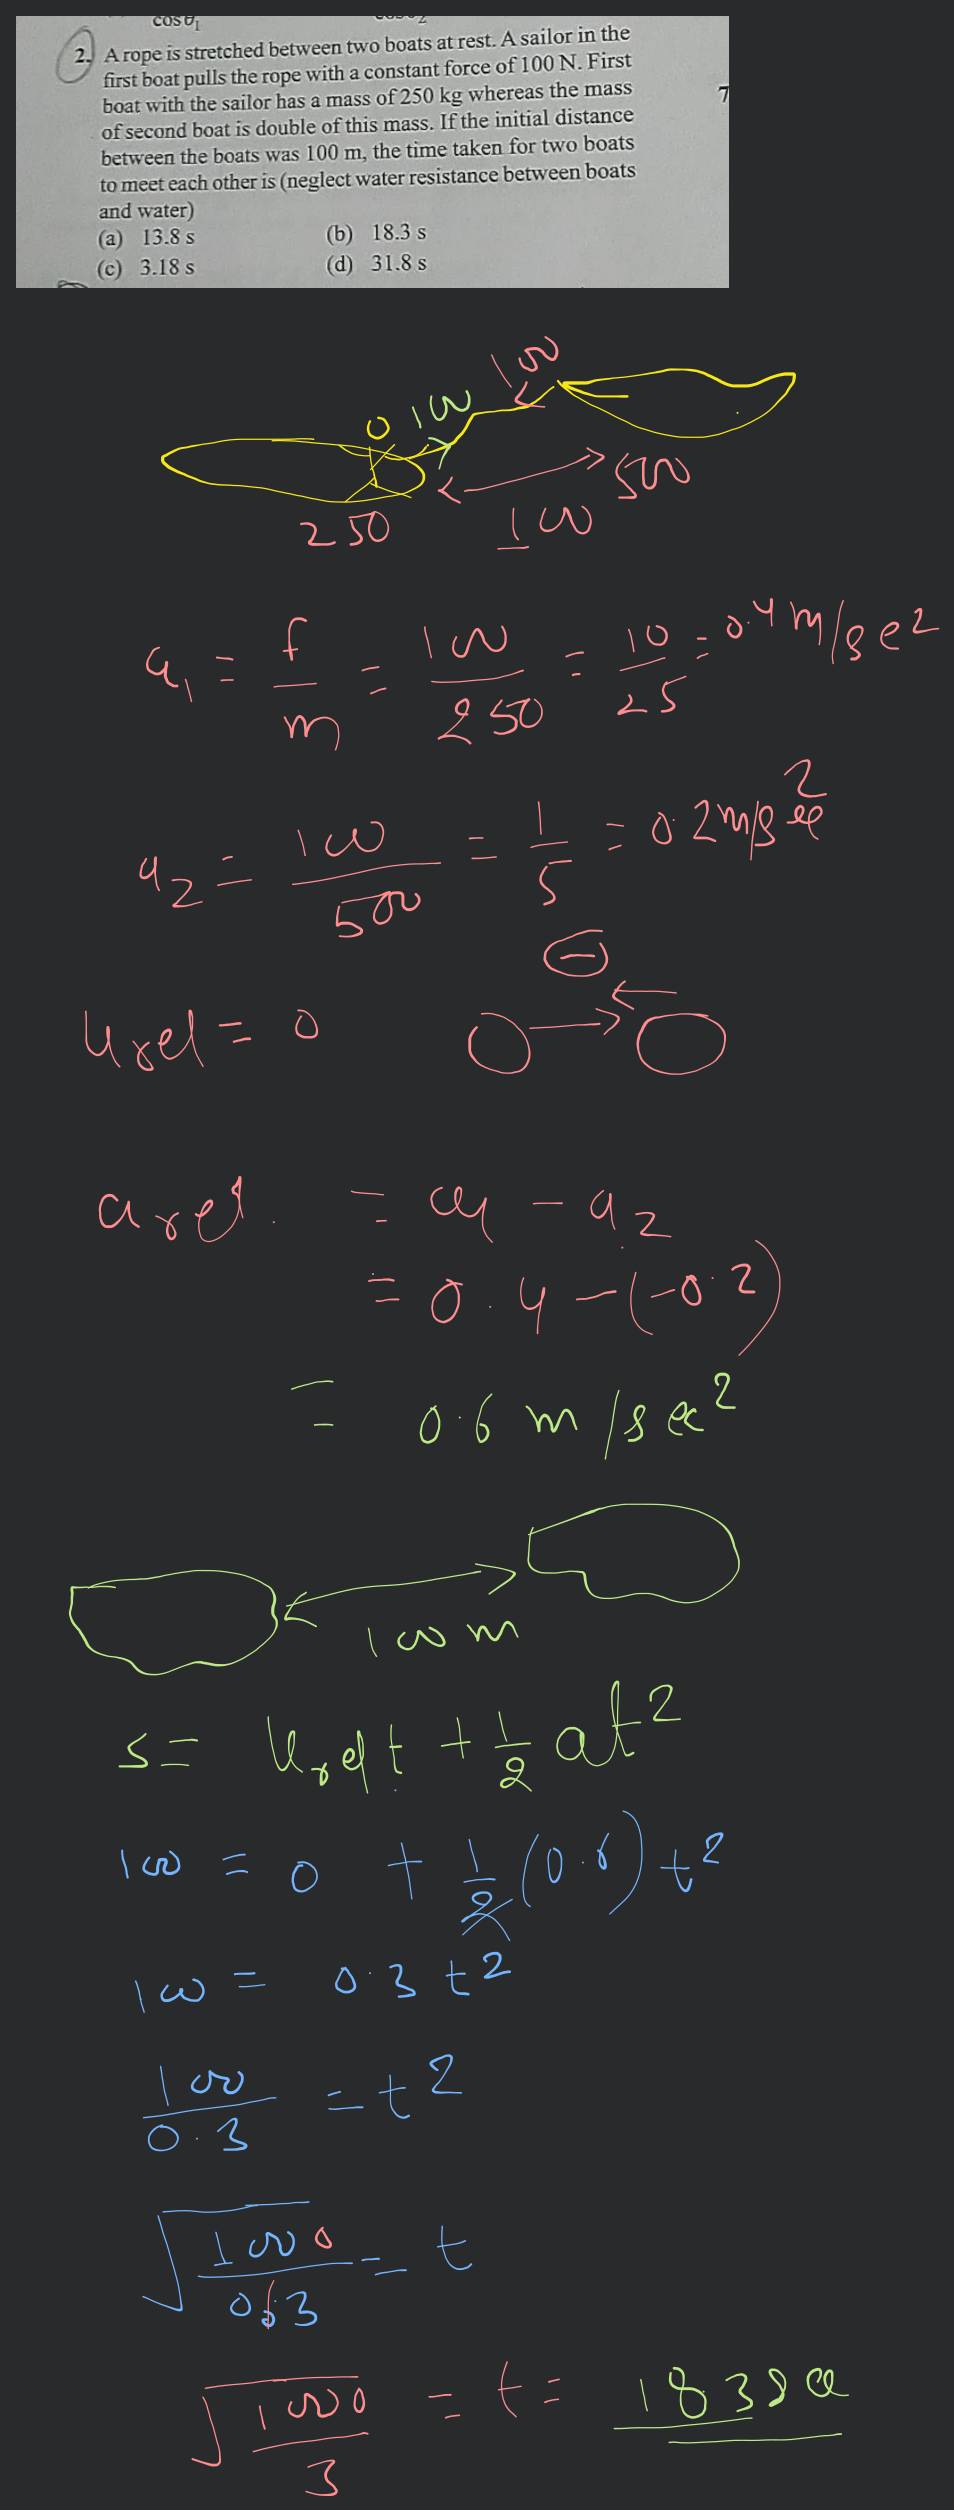 cosθ₁
2. A rope is stretched between two boats at rest. A sailor in the
first boat pulls the rope with a constant force of 100 N. First
boat with the sailor has a mass of 250 kg whereas the mass
of second boat is double of this mass. If the initial distance
between the boats was 100 m, the time taken for two boats
to meet each other is (neglect water resistance between boats
and water)
(a) 13.8 s (b) 18.3 s
(c) 3.18 s (d) 31.8 s
7
100
100
500
250 100
a₁ = f/m = 100/250 = 10/25 = 0.4 m/sec²
a₂ = 100/500 = 1/5 = 0.2 m/sec²
−
Urel = 0
arel. = a₁ − a₂
= 0.4 − (−0.2)
= 0.6 m/sec²
100 m
s = Urel t + 1/2 at²
100 = 0 + 1/2 (0.6) t²
100 = 0.3 t²
100/0.3 = t²
√1000/0.3 = t
√1000/3 = t = 18.3 sec